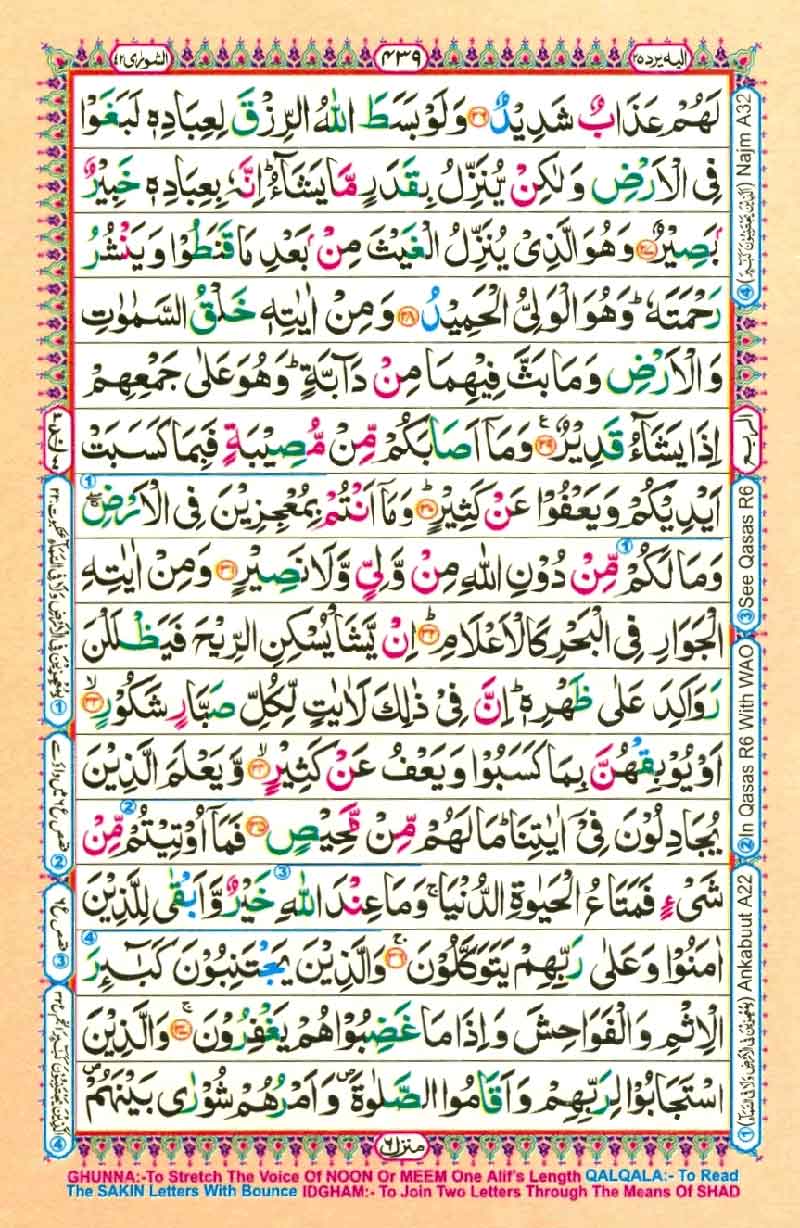 الشورٰى ٤٢
٤٣٩
اليه يرد ٢٥
لَهُمْ عَذَابٌ شَدِيْدٌ ۝٢٦ وَلَوْ بَسَطَ اللّٰهُ الرِّزْقَ لِعِبَادِهٖ لَبَغَوْا
فِى الْاَرْضِ وَلٰكِنْ يُّنَزِّلُ بِقَدَرٍ مَّا يَشَآءُ ؕ اِنَّهٗ بِعِبَادِهٖ خَبِيْرٌۢ
بَصِيْرٌ ۝٢٧ وَهُوَ الَّذِىْ يُنَزِّلُ الْغَيْثَ مِنْۢ بَعْدِ مَا قَنَطُوْا وَيَنْشُرُ
رَحْمَتَهٗ ؕ وَهُوَ الْوَلِىُّ الْحَمِيْدُ ۝٢٨ وَمِنْ اٰيٰتِهٖ خَلْقُ السَّمٰوٰتِ
وَالْاَرْضِ وَمَا بَثَّ فِيْهِمَا مِنْ دَآبَّةٍ ؕ وَهُوَ عَلٰى جَمْعِهِمْ
اِذَا يَشَآءُ قَدِيْرٌ ۝٢٩ وَمَاۤ اَصَابَكُمْ مِّنْ مُّصِيْبَةٍ فَبِمَا كَسَبَتْ
اَيْدِيْكُمْ وَيَعْفُوْا عَنْ كَثِيْرٍ ؕ۝٣٠ وَمَاۤ اَنْتُمْ بِمُعْجِزِيْنَ فِى الْاَرْضِ ۖۚ
وَمَا لَكُمْ مِّنْ دُوْنِ اللّٰهِ مِنْ وَّلِىٍّ وَّلَا نَصِيْرٍ ۝٣١ وَمِنْ اٰيٰتِهِ
الْجَوَارِ فِى الْبَحْرِ كَالْاَعْلَامِ ؕ۝٣٢ اِنْ يَّشَاْ يُسْكِنِ الرِّيْحَ فَيَظْلَلْنَ
رَوَاكِدَ عَلٰى ظَهْرِهٖ ؕ اِنَّ فِىْ ذٰلِكَ لَاٰيٰتٍ لِّكُلِّ صَبَّارٍ شَكُوْرٍ ۙ۝٣٣
اَوْ يُوْبِقْهُنَّ بِمَا كَسَبُوْا وَيَعْفُ عَنْ كَثِيْرٍ ۙ۝٣٤ وَّيَعْلَمَ الَّذِيْنَ
يُجَادِلُوْنَ فِىْۤ اٰيٰتِنَا ؕ مَا لَهُمْ مِّنْ مَّحِيْصٍ ۝٣٥ فَمَاۤ اُوْتِيْتُمْ مِّنْ
شَىْءٍ فَمَتَاعُ الْحَيٰوةِ الدُّنْيَا ۚ وَمَا عِنْدَ اللّٰهِ خَيْرٌ وَّاَبْقٰى لِلَّذِيْنَ
اٰمَنُوْا وَعَلٰى رَبِّهِمْ يَتَوَكَّلُوْنَ ۚ۝٣٦ وَالَّذِيْنَ يَجْتَنِبُوْنَ كَبٰٓئِرَ
الْاِثْمِ وَالْفَوَاحِشَ وَاِذَا مَا غَضِبُوْا هُمْ يَغْفِرُوْنَ ۚ۝٣٧ وَالَّذِيْنَ
اسْتَجَابُوْا لِرَبِّهِمْ وَاَقَامُوا الصَّلٰوةَ ۪ وَاَمْرُهُمْ شُوْرٰى بَيْنَهُمْ ۪
④ Najm A32
③ See Qasas R6
② In Qasas R6 With WAO
① Ankabuut A22
منزل ٦
GHUNNA:-To Stretch The Voice Of NOON Or MEEM One Alif's Length QALQALA:- To Read
The SAKIN Letters With Bounce IDGHAM:- To Join Two Letters Through The Means Of SHAD